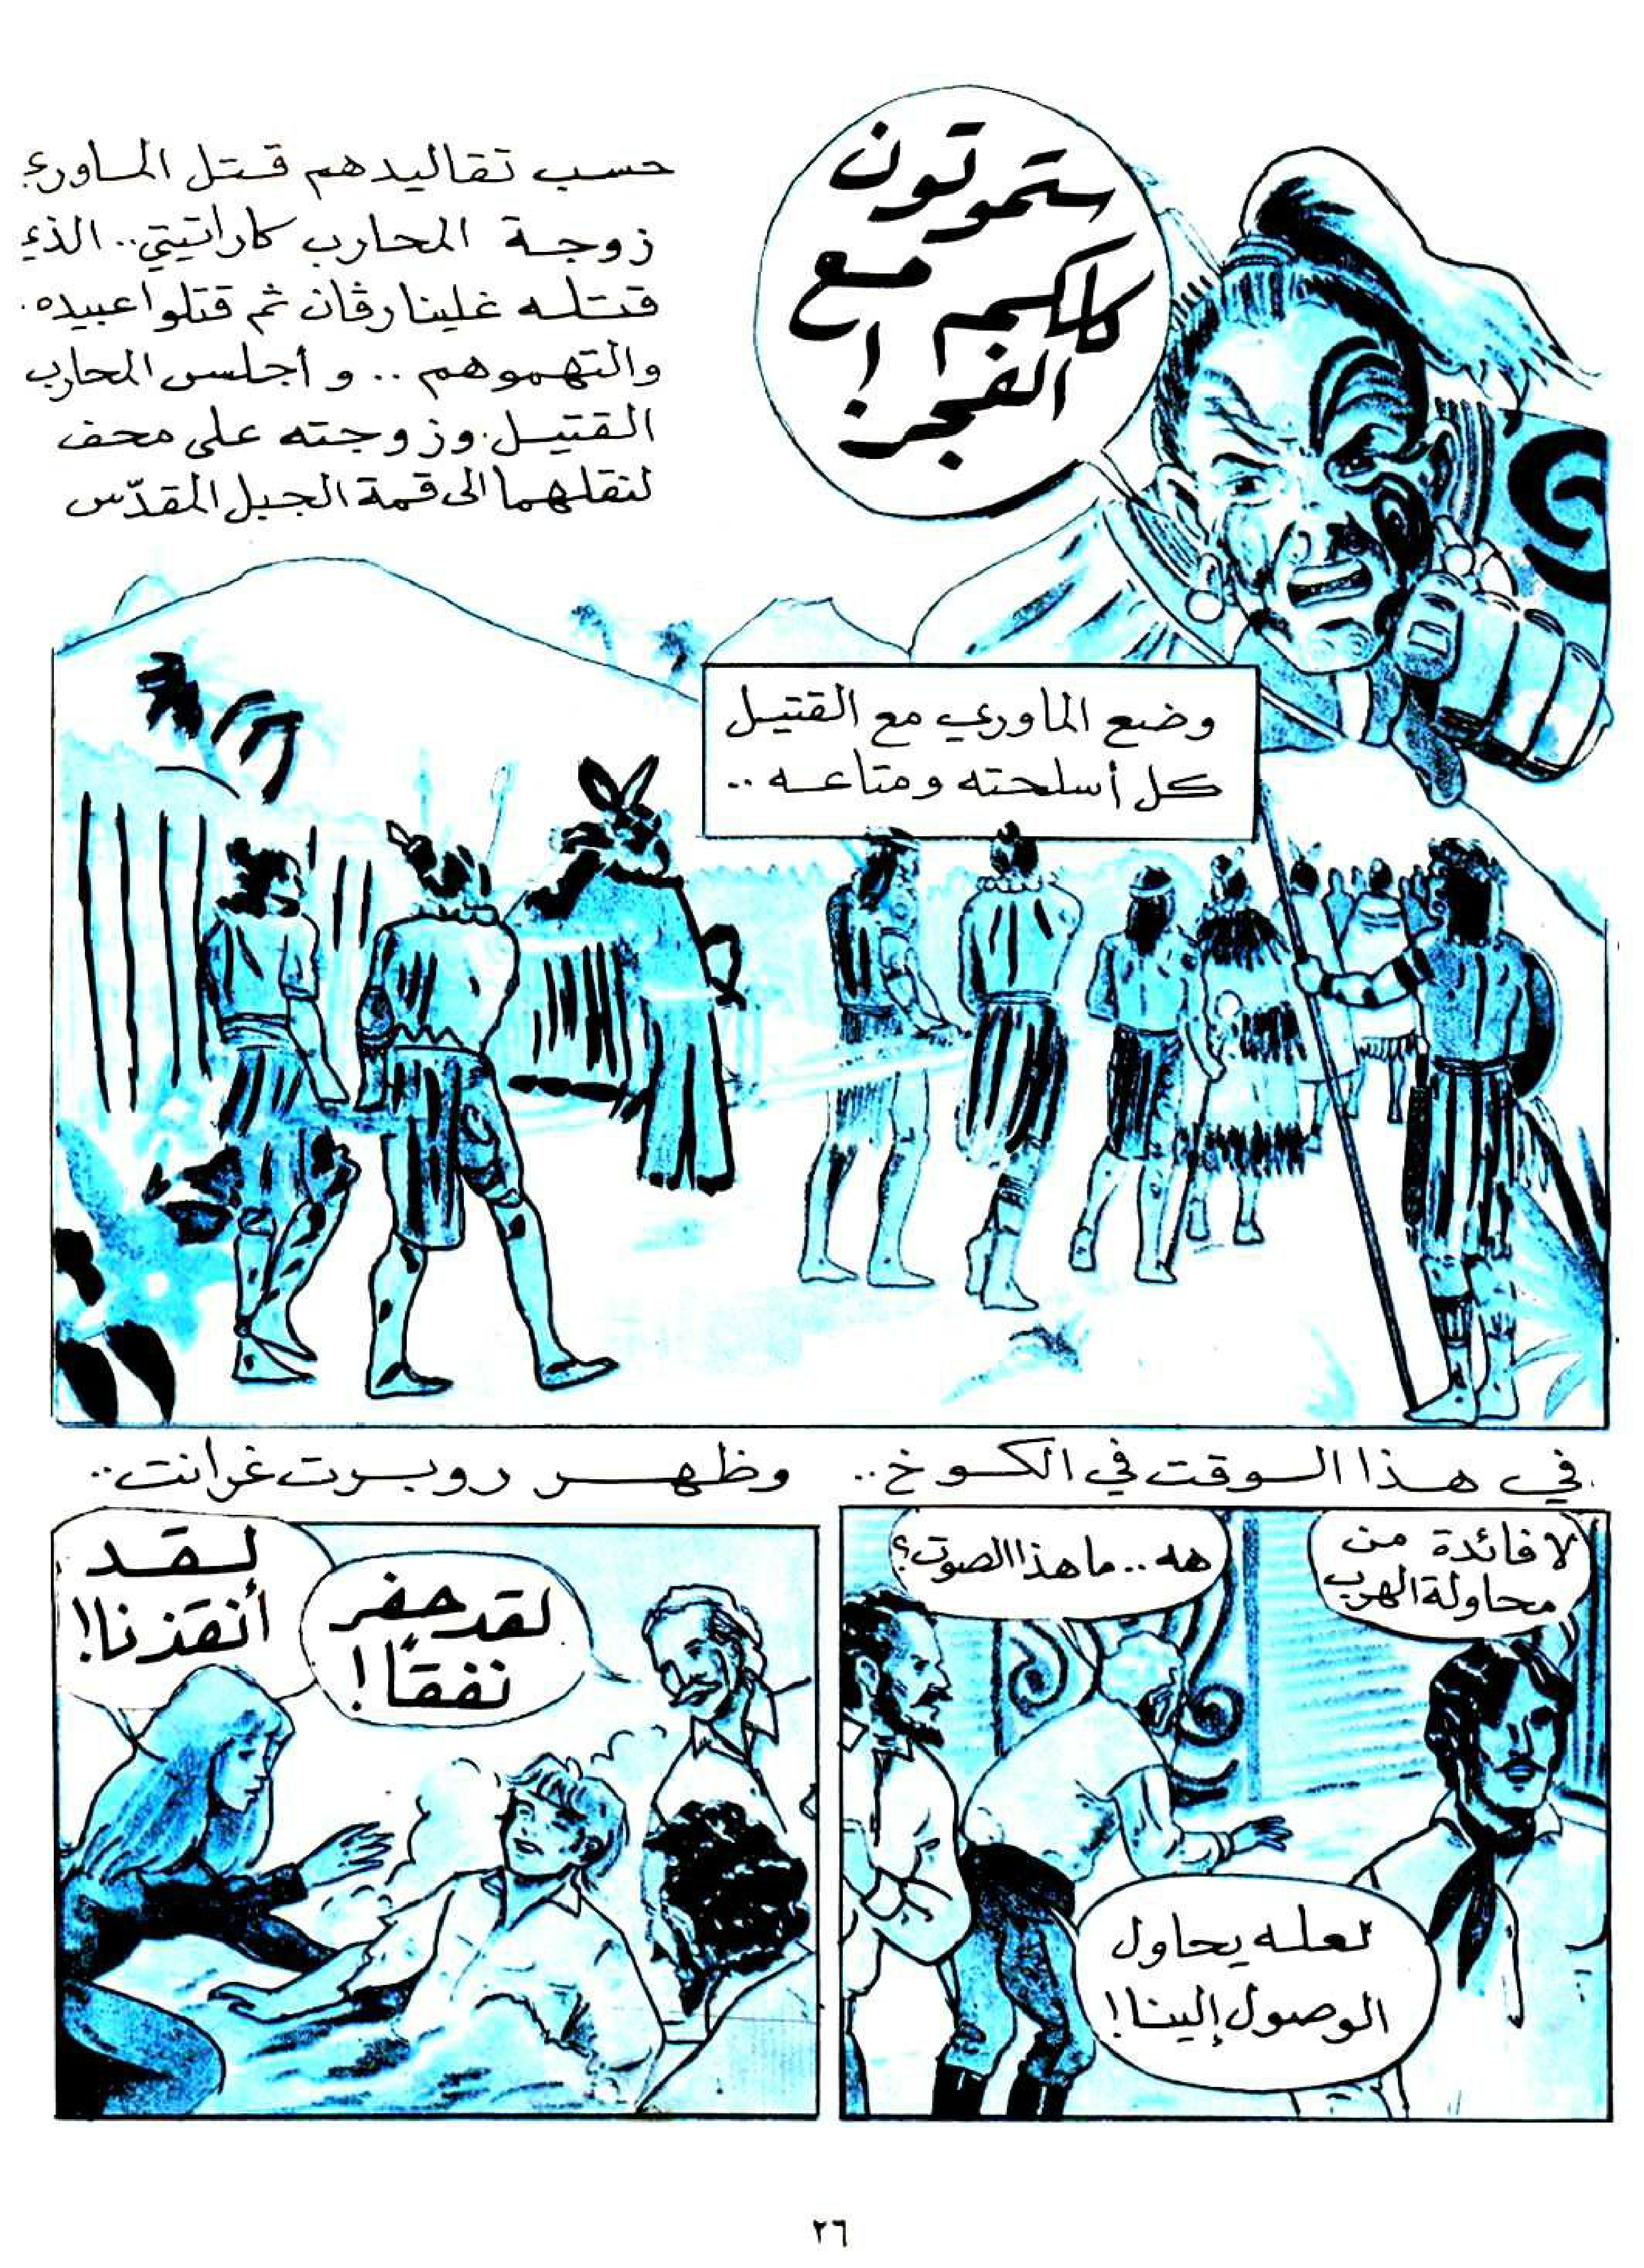 ستموتون
كلكم مع
الفجر!
حسب تقاليدهم قتل الماوري
زوجة المحارب كاراتيتي.. الذي
قتله غلينارڤان ثم قتلوا عبيده.
والتهموهم .. و أجلس المحارب
القتيل وزوجته على محف
لنقلهما الى قمة الجبل المقدّس
وضع الماوري مع القتيل
كل أسلحته ومتاعه ..
في هذا الوقت في الكوخ ..
لا فائدة من
محاولة الهرب
هه .. ما هذا الصوت؟
لعله يحاول
الوصول إلينا!
وظهر روبرت غرانت ..
لقد حفر
نفقًا!
لقد
أنقذنا!
٢٦